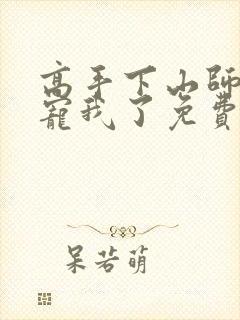 高手下山師
寵我了免費
呆若萌